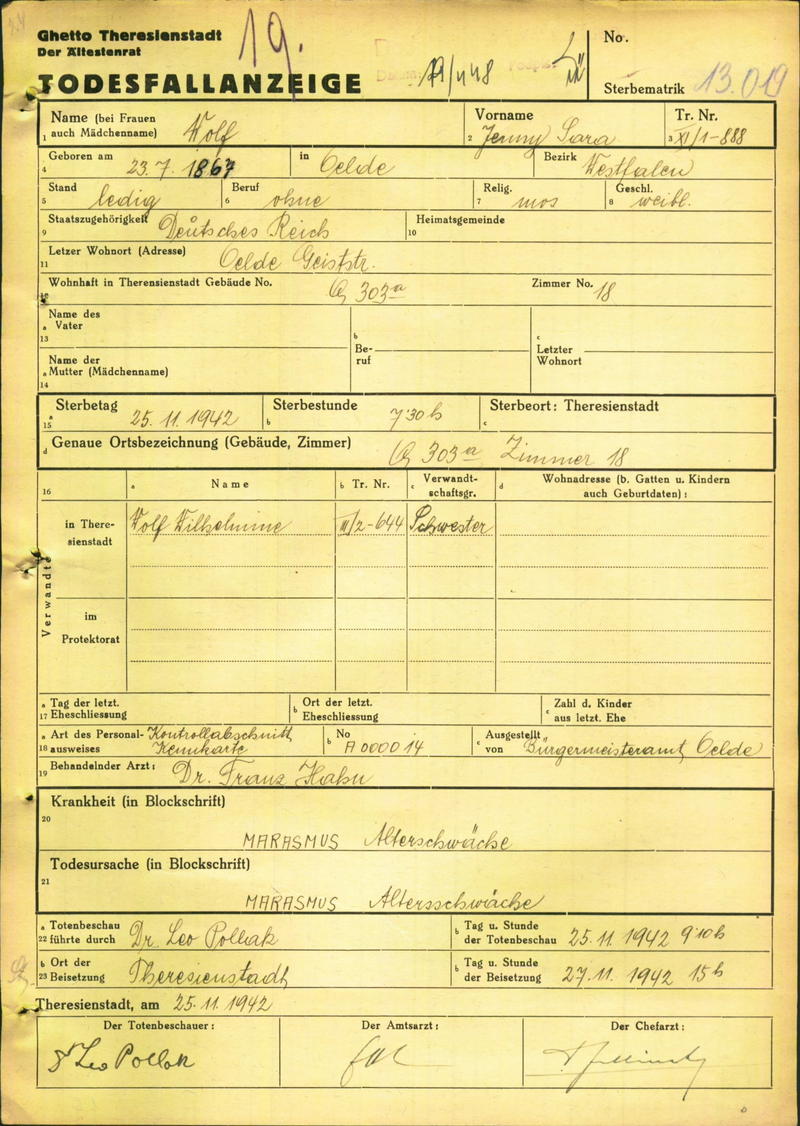 Ghetto Theresienstadt
Der Ältestenrat
TODESFALLANZEIGE
19.
No.
Sterbematrik 13.019
Name (bei Frauen auch Mädchenname) Wolf
1
Vorname Jenny Sara
2
Tr. Nr. XI/1-888
3
Geboren am 23.7.1867
4
in Oelde
Bezirk Westfalen
Stand ledig
5
Beruf ohne
6
Relig. mos
7
Geschl. weibl.
8
Staatszugehörigkeit Deutsches Reich
9
Heimatsgemeinde
10
Letzer Wohnort (Adresse) Oelde Geiststr.
11
Wohnhaft in Theresienstadt Gebäude No. Q 303a
Zimmer No. 18
Name des
a Vater
13
b
Beruf
c
Letzter
Wohnort
Name der
a Mutter (Mädchenname)
14
a Sterbetag 25.11.1942
15
b Sterbestunde 7'30 h
c Sterbeort: Theresienstadt
d Genaue Ortsbezeichnung (Gebäude, Zimmer) Q 303a Zimmer 18
16
a Name
b Tr. Nr.
c Verwandtschaftsgr.
d Wohnadresse (b. Gatten u. Kindern auch Geburtdaten):
Verwandte
in Theresienstadt
Wolf Wilhelmine III/2-644 Schwester
im Protektorat
a Tag der letzt.
17 Eheschliessung
b Ort der letzt.
Eheschliessung
c Zahl d. Kinder
aus letzt. Ehe
a Art des Personal-
18 ausweises Kontrollabschnitt Kennkarte
b No A 000014
c Ausgestellt von Bürgermeisteramt Oelde
19 Behandelnder Arzt: Dr. Franz Hahn
Krankheit (in Blockschrift)
20
MARASMUS Alterschwäche
Todesursache (in Blockschrift)
21
MARASMUS Altersschwäche
a Totenbeschau
22 führte durch Dr. Leo Pollak
b Tag u. Stunde
der Totenbeschau 25.11.1942 9'10 h
b Ort der
23 Beisetzung Theresienstadt
b Tag u. Stunde
der Beisetzung 27.11.1942 15h
Theresienstadt, am 25.11.1942
Der Totenbeschauer:
Der Amtsarzt:
Der Chefarzt:
Dr Leo Pollak